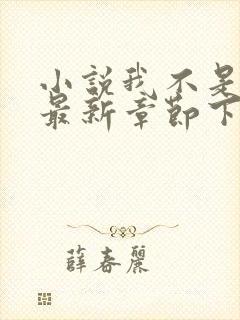 小説我不是
最新章節下
薛春麗